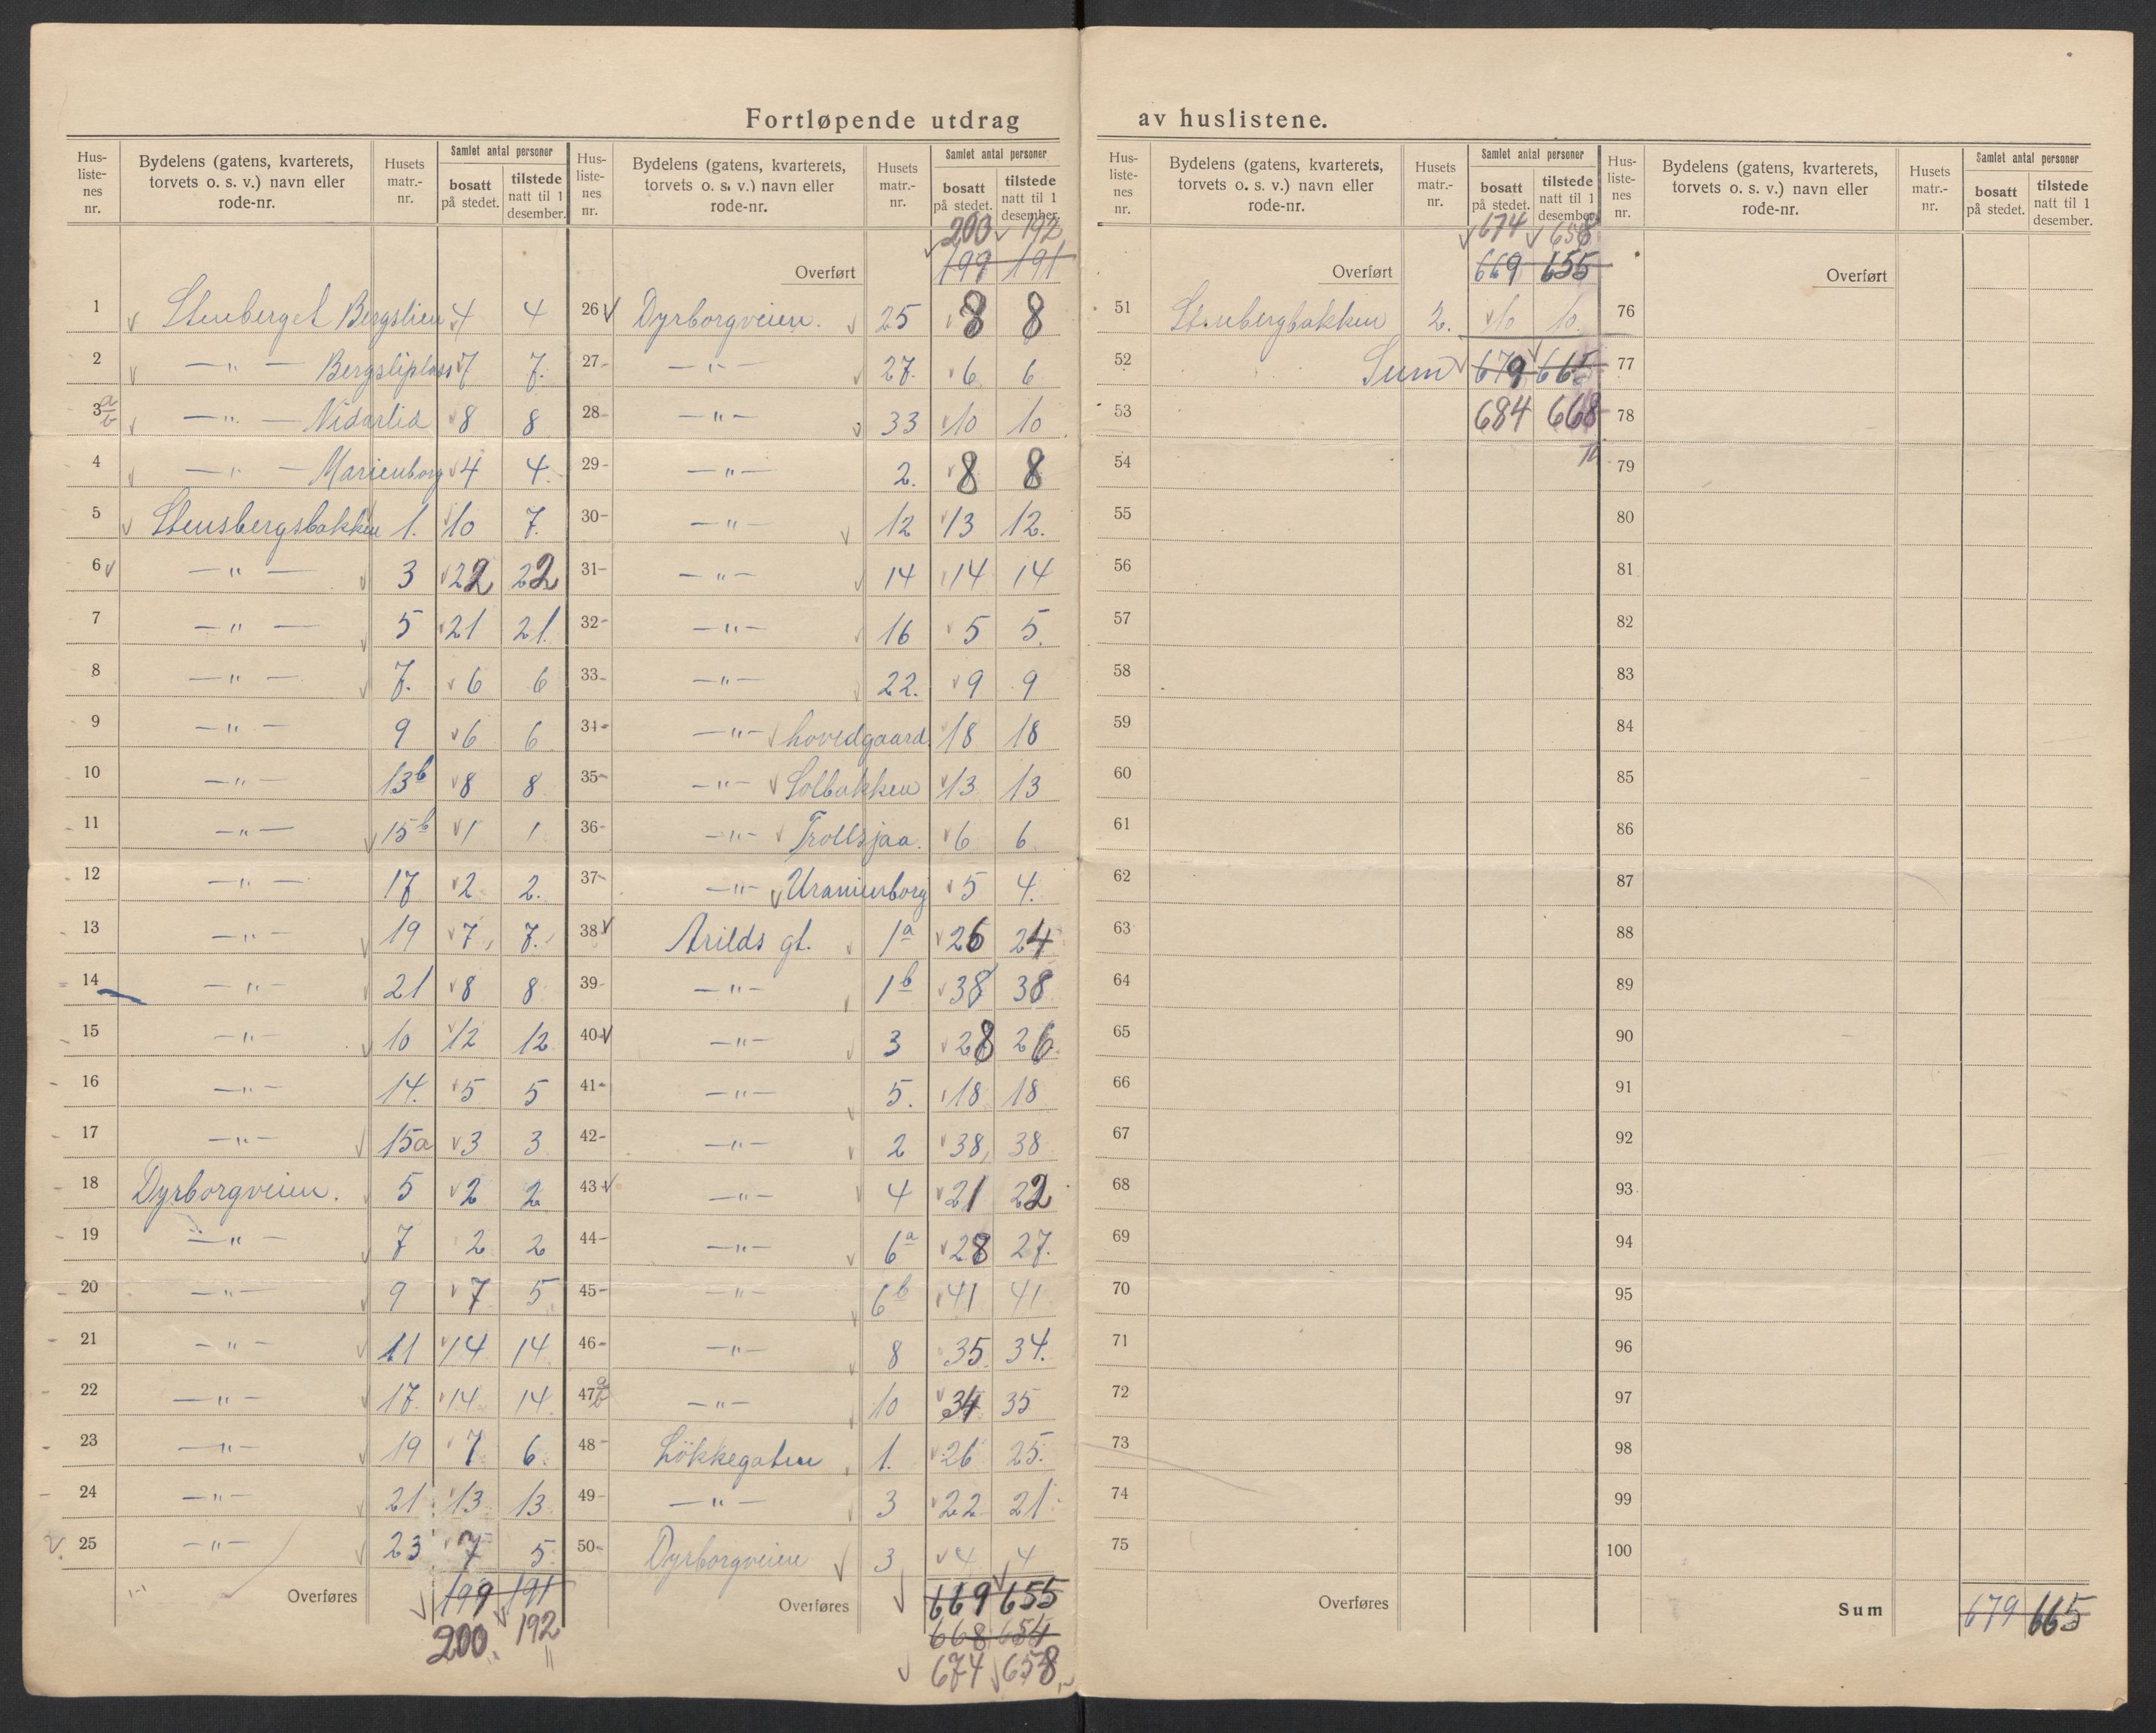 Fortløpende utdrag av huslistene.
Hus- liste- nes nr. | Bydelens (gatens, kvarterets, torvets o. s. v.) navn eller rode-nr. | Husets matr.- nr. | Samlet antal personer bosatt på stedet. | tilstede natt til 1 desember.
1 Stenberget Bergslien 4 4
2 —„— Bergsliplass 7 7.
3 a/b —„— Nidarlid 8 8
4 —„— Marienborg 4 4.
5 Stensbergsbakken 1. 10 7.
6 —„— 3 22 22
7 —„— 5 21 21.
8 —„— 7. 6 6
9 —„— 9 6 6
10 —„— 13b 8 8
11 —„— 15b 1 1
12 —„— 17 2 2.
13 —„— 19 7 7.
14 —„— 21 8 8
15 —„— 10 12 12
16 —„— 14. 5 5
17 —„— 15a 3 3
18 Dyrborgveien. 5 2 2
19 —„— 7 2 2
20 —„— 9 7 5
21 —„— 11 14 14
22 —„— 17. 14 14
23 —„— 19 7 6
24 —„— 21 13 13
25 —„— 23 7 5
Overføres 199 191
200 192
Hus- liste- nes nr. | Bydelens (gatens, kvarterets, torvets o. s. v.) navn eller rode-nr. | Husets matr.- nr. | Samlet antal personer bosatt på stedet. | tilstede natt til 1 desember.
200 192
Overført 199 191
26 Dyrborgveien. 25 8 8
27 —„— 27. 6 6
28 —„— 33 10 10
29 —„— 2. 8 8
30 —„— 12 13 12.
31 —„— 14 14 14
32 —„— 16 5 5.
33 —„— 22. 9 9
34 —„— hovedgaard. 18 18
35 —„— Solbakken 13 13
36 —„— Trollsjaa. 6 6
37 —„— Uranienborg 5 4.
38 Arilds gt. 1a 26 24
39 —„— 1b 38 38
40 —„— 3 28 26
41 —„— 5. 18 18
42 —„— 2 38 38
43 —„— 4 21 22
44 —„— 6a 28 27.
45 —„— 6b 41 41
46 —„— 8 35 34.
47 a/b —„— 10 34 35
48 Lökkegaten 1. 26 25.
49 —„— 3 22 21
50 Dyrborgveien 3 4 4
Overføres 669 655
668 654
674 658
Hus- liste- nes nr. | Bydelens (gatens, kvarterets, torvets o. s. v.) navn eller rode-nr. | Husets matr.- nr. | Samlet antal personer bosatt på stedet. | tilstede natt til 1 desember.
674 658
Overført 669 655
51 Stenbergbakken 2. 10 10.
52 Sum 679 665
53 684 668
54
55
56
57
58
59
60
61
62
63
64
65
66
67
68
69
70
71
72
73
74
75
Overføres
Hus- liste- nes nr. | Bydelens (gatens, kvarterets, torvets o. s. v.) navn eller rode-nr. | Husets matr.- nr. | Samlet antal personer bosatt på stedet. | tilstede natt til 1 desember.
Overført
76
77
78
79
80
81
82
83
84
85
86
87
88
89
90
91
92
93
94
95
96
97
98
99
100
Sum 679 665